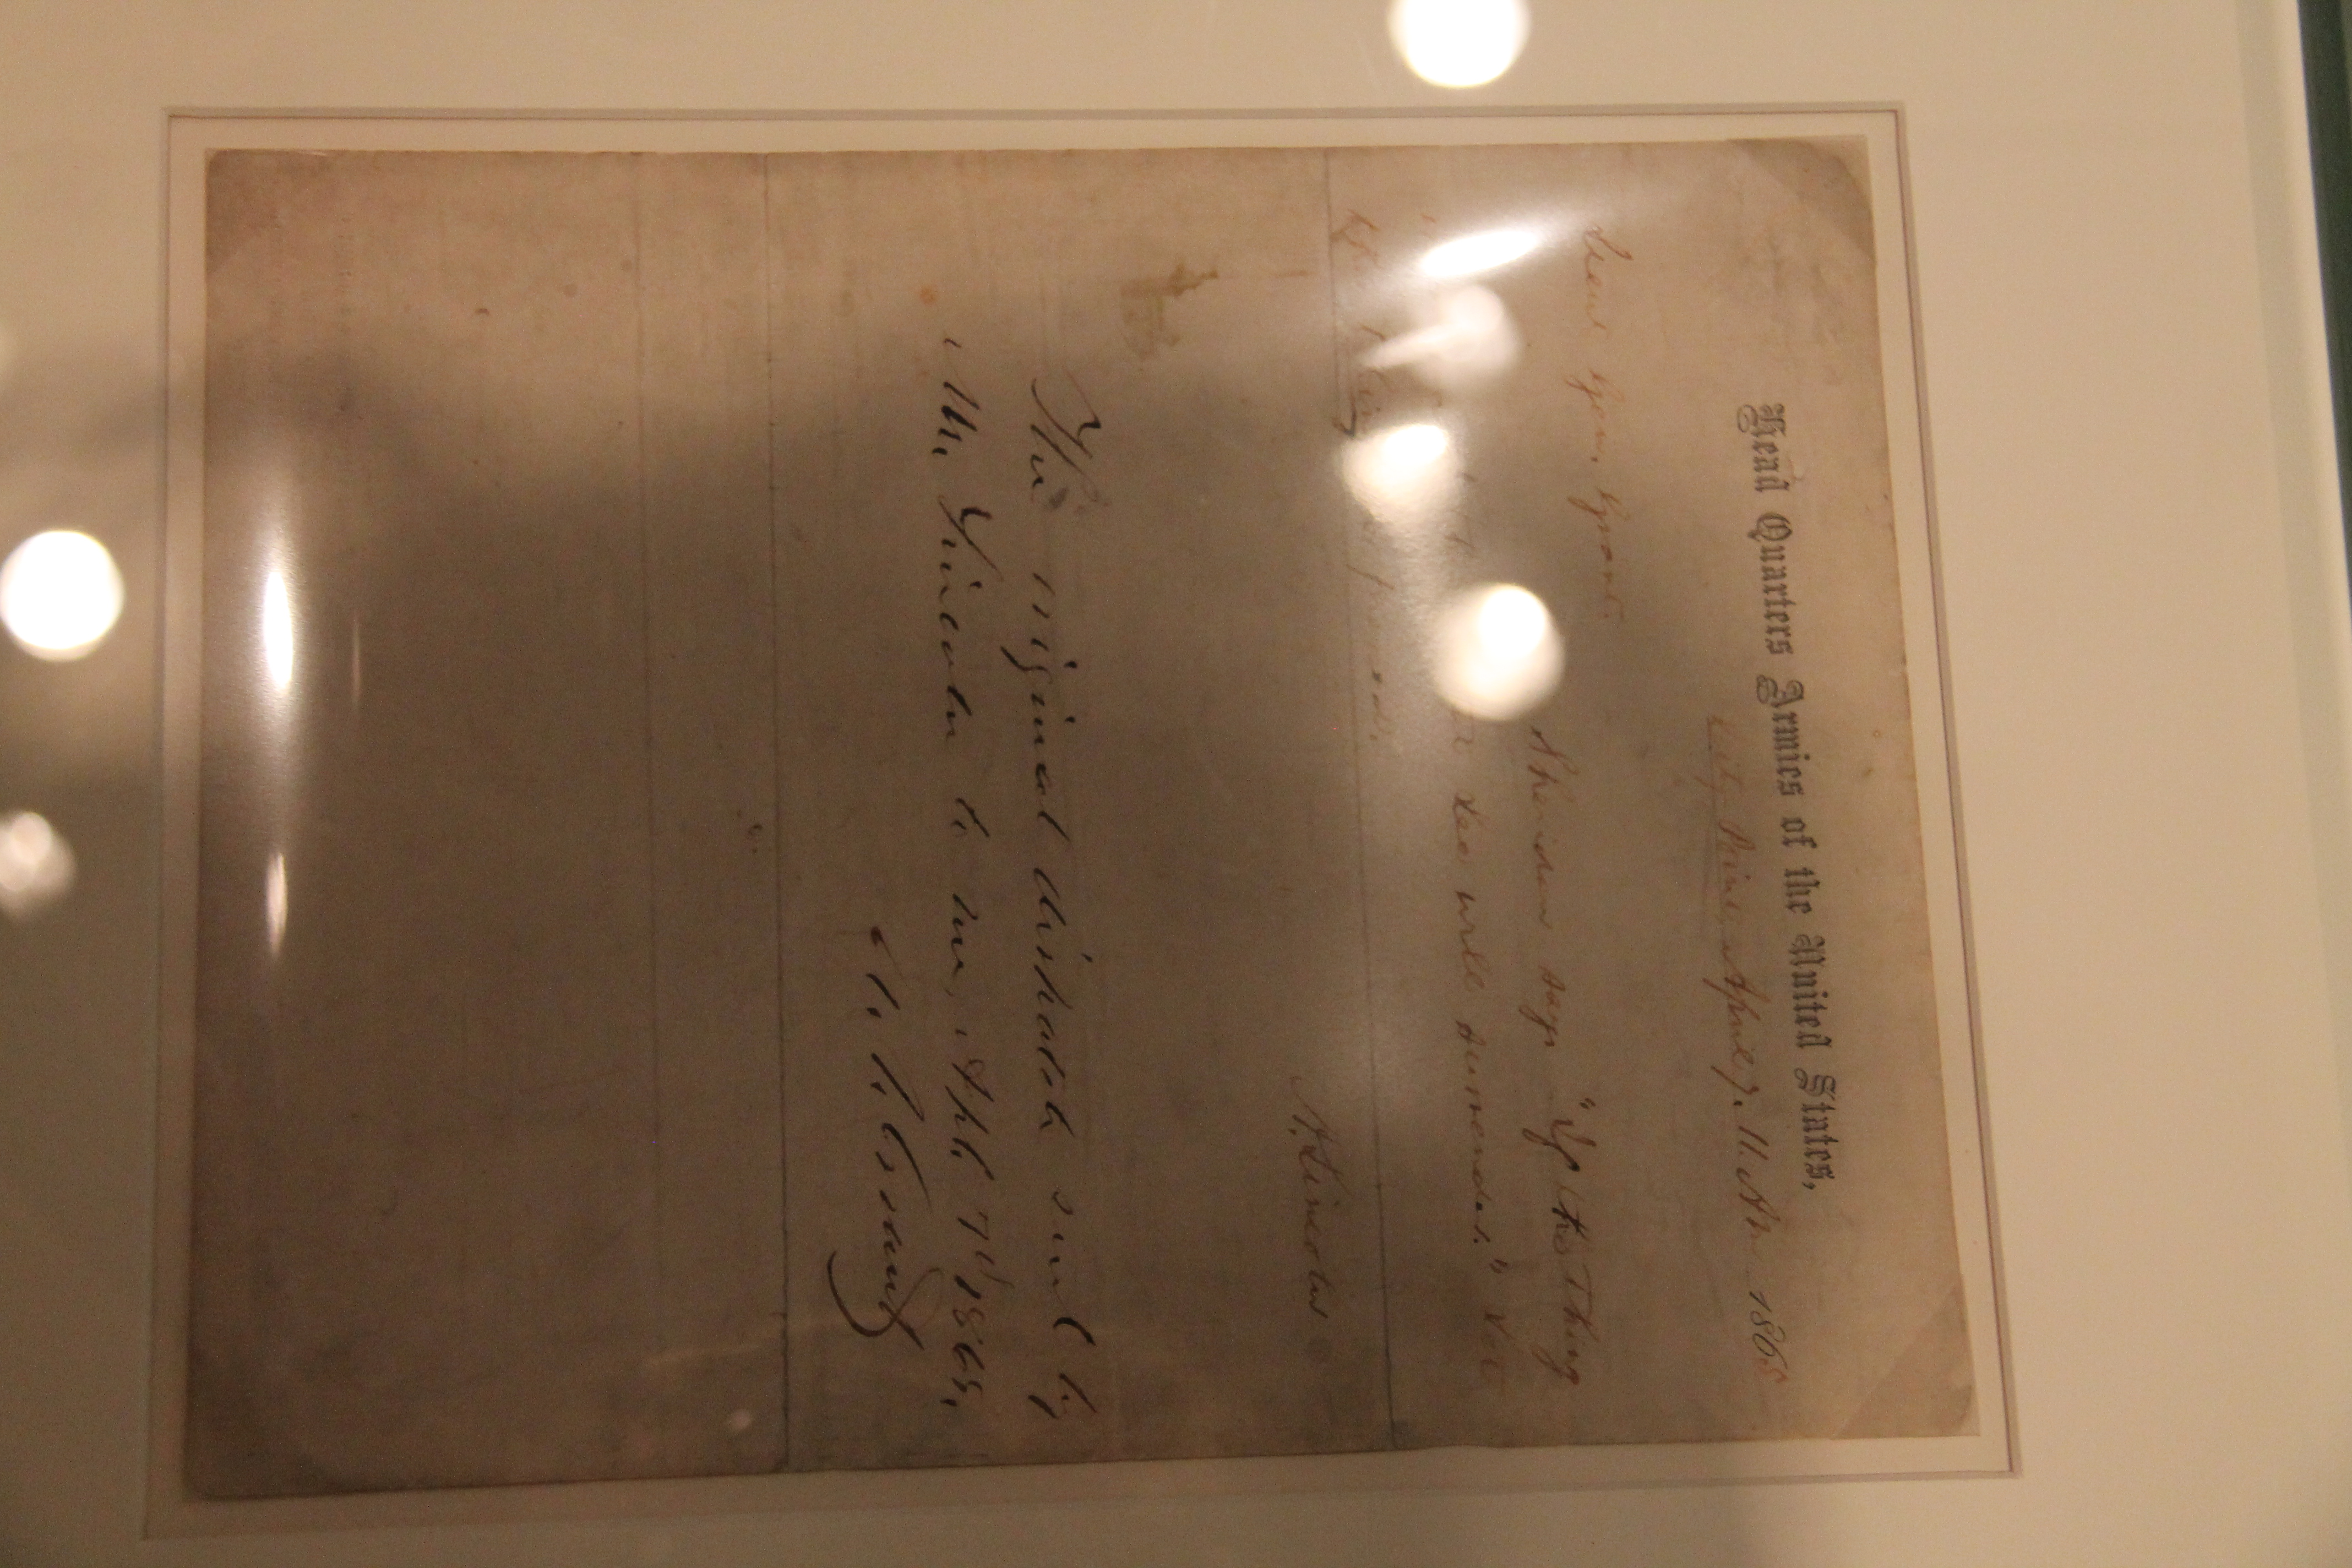 Head Quarters Armies of the United States,
City Point, April 7. 11 AM. 1865
Lieut Gen. Grant.
Sheridan says "If the thing
Lee will surrender." Let
A. Lincoln
The original dispatch sent by
Mr. Lincoln to me, Apl. 7th 1865.
U. S. Grant